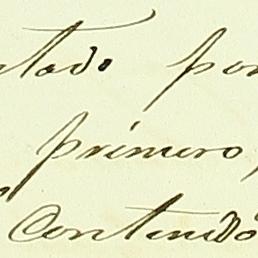 ntado por
primero,
Contenido